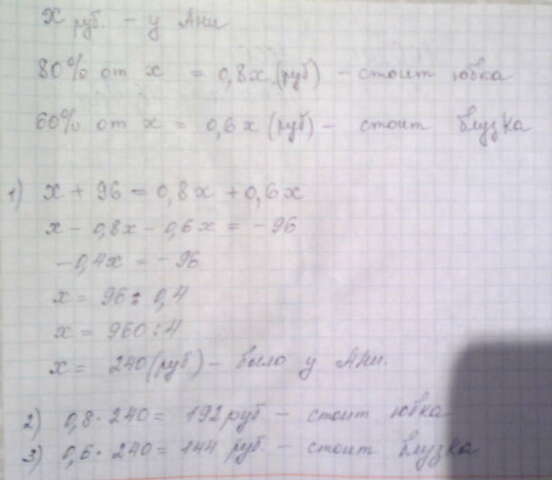 x руб. – у Ани
80% от x = 0,8x (руб) – стоит юбка
60% от x = 0,6x (руб) – стоит блузка
1) x + 96 = 0,8x + 0,6x
x - 0,8x - 0,6x = -96
-0,4x = -96
x = 96 : 0,4
x = 960 : 4
x = 240 (руб) – было у Ани.
2) 0,8 · 240 = 192 руб – стоит юбка
3) 0,6 · 240 = 144 руб. – стоит блузка